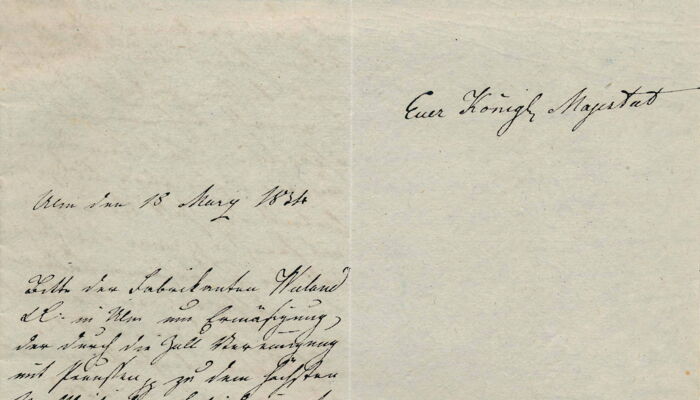 Euer Königl. Majestät
Ulm den 13 März 1834
Bitte der Fabrikanten Wieland
in Ulm um Ermäßigung,
der durch die Zoll Vereinigung
mit Preussen zu dem höchsten